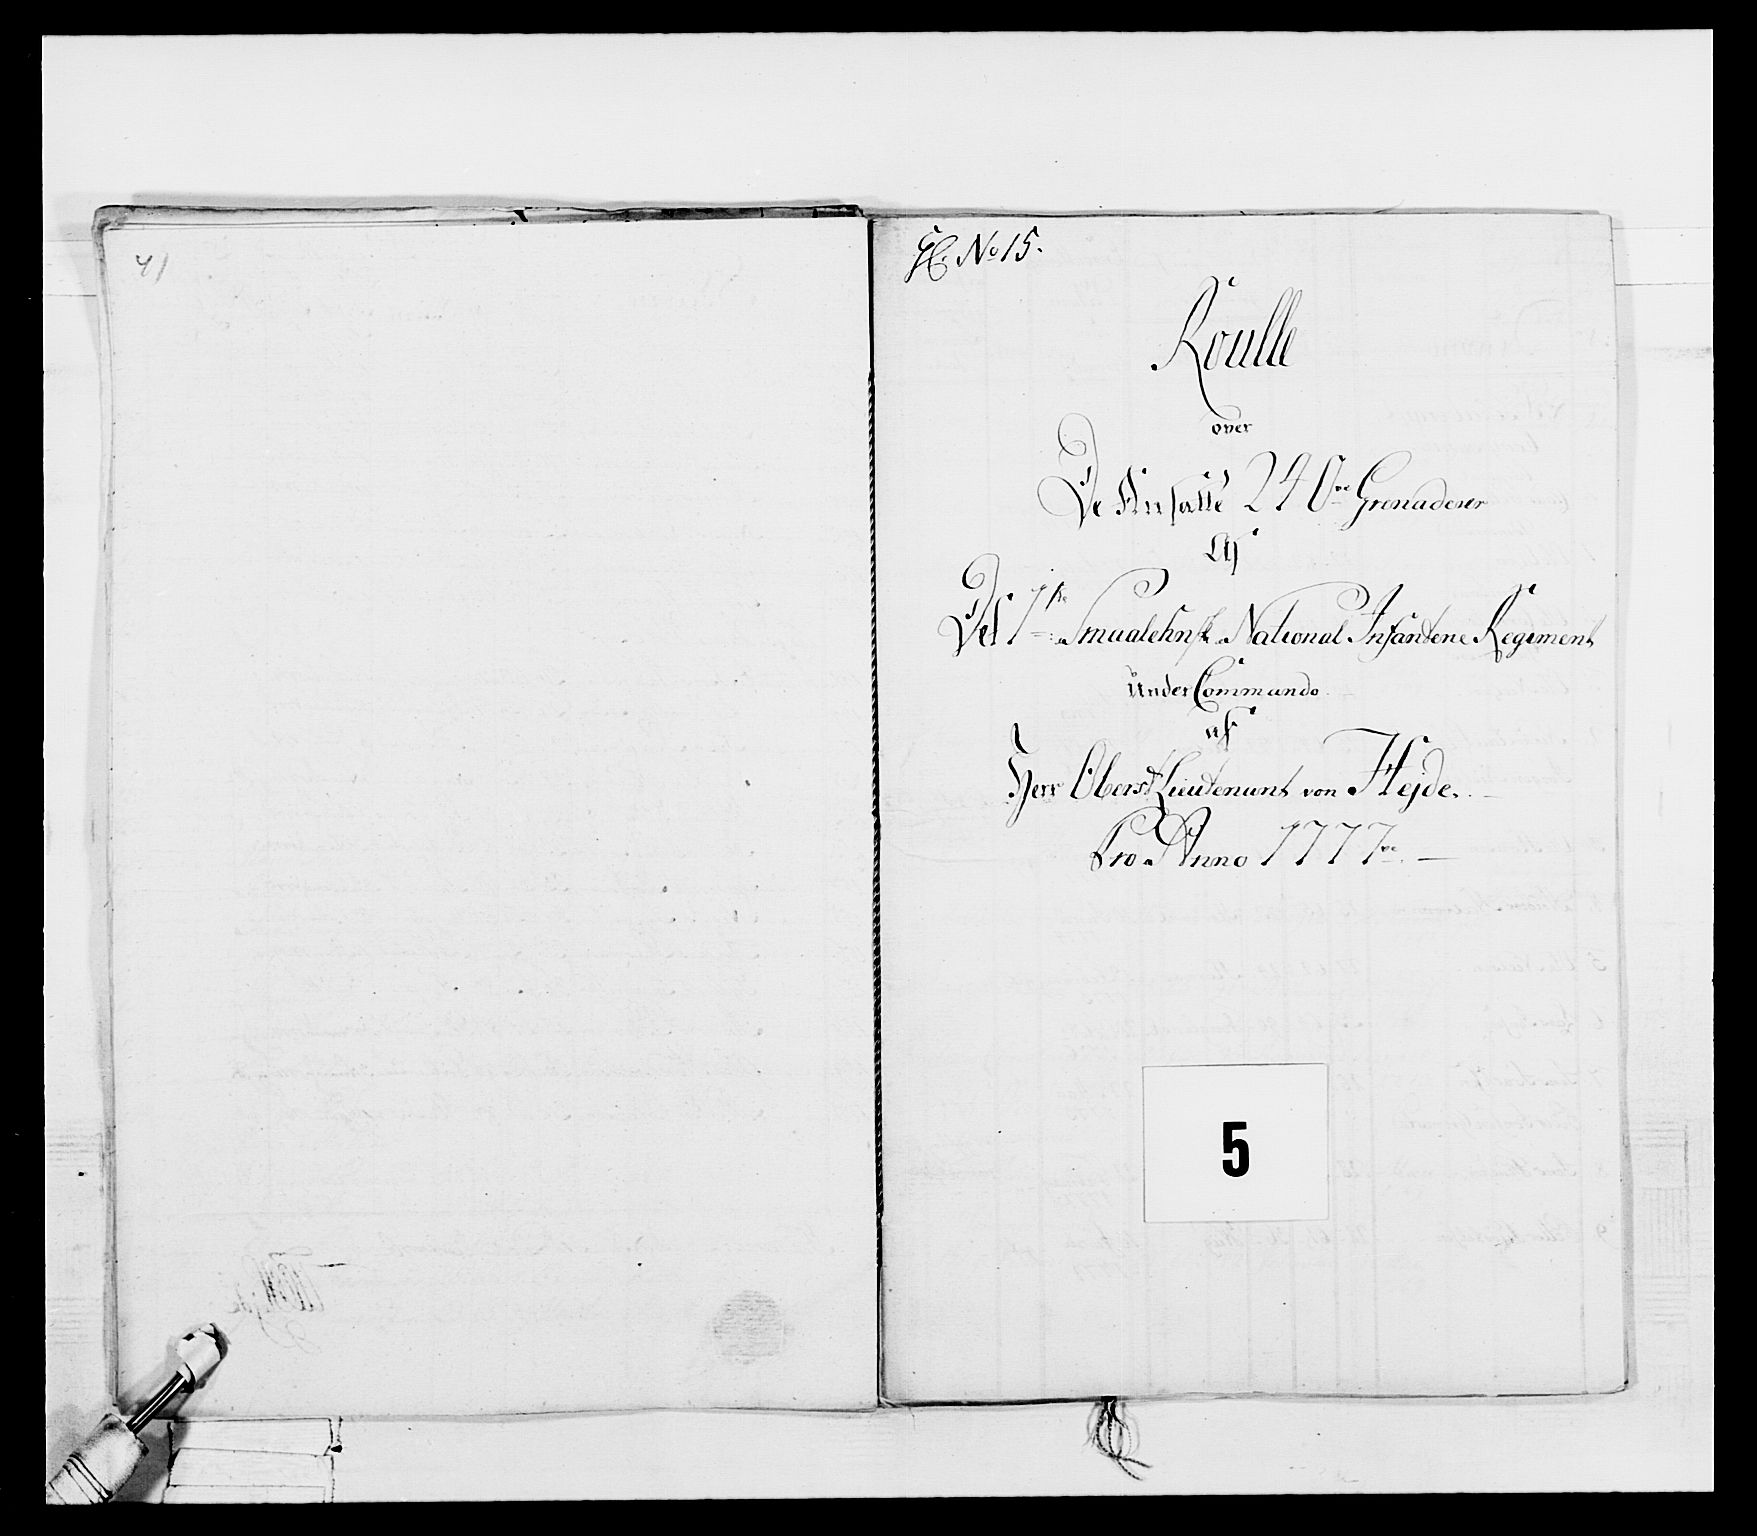 41
H. No 15.
Roulle
over
De Ansatte 240ve Grenaderer
Af
Det 1ste Smaalehnsk National Infanterie Regiment
Under Commando
af
Herr Oberst Lieutenant von Hejde.
Pro Anno 1777ve.
5